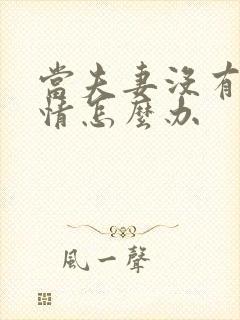 當夫妻沒有
情怎麼办
風一聲